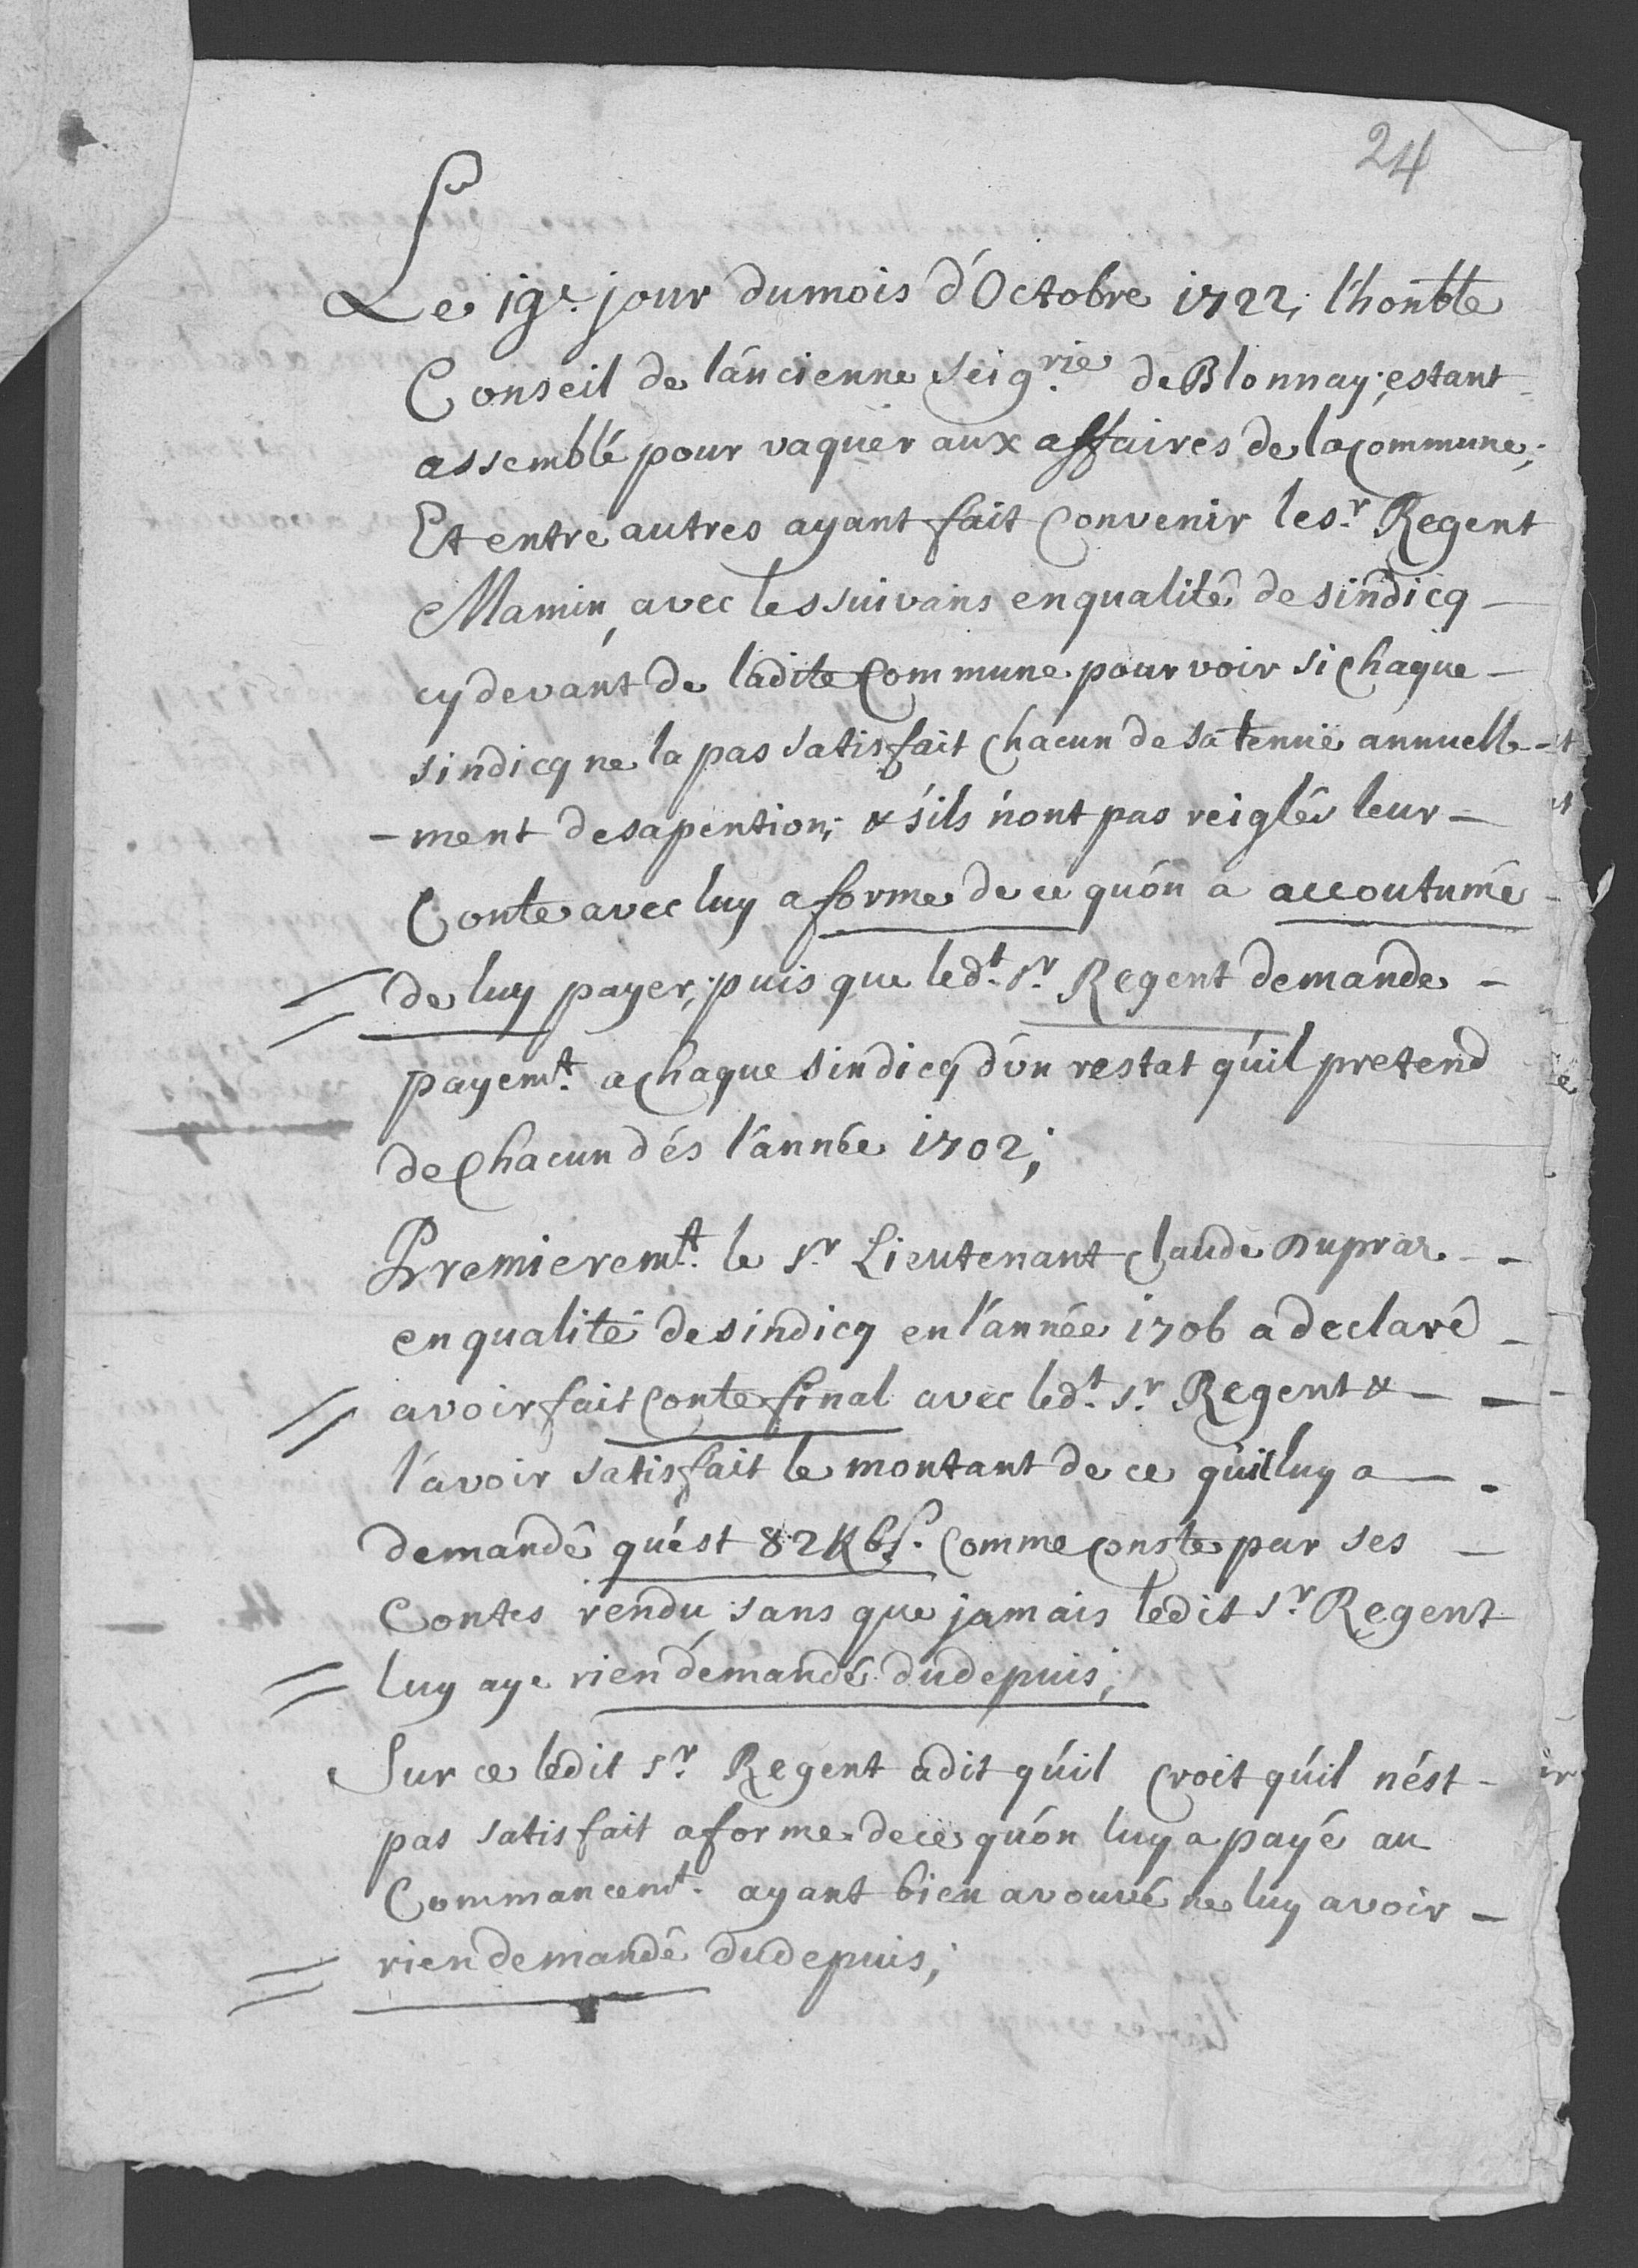 24
Le 19.e jour dumois d'Octobre 1722, l'honble
Conseil de l'ancienne seig.rie de Blonnay, estant
assemblé pour vaquer aux affaires de la commune;
Et entre autres ayant fait Convenir le s.r Regent
Mamin, avec les suivans en qualité de sindicq
cydevant de ladite Commune pour voir si chaque
sindicq ne la pas satisfait chacun de sa tenuë annuelle-
-ment de sa pention; & s'ils n'ont pas reiglé leur
Conte avec luy a forme de ce qu'on a accoutumé
de luy payer, puis que led.t s.r Regent demande
payem.t a chaque sindicq d'un restat qu'il pretend
de chacun dés l'année 1702;
Premierem.t le s.r Lieutenant Claude Dupraz
en qualité de sindicq en l'année 1706 a declaré
avoir fait Conte final avec led.t s.r Regent &
l'avoir satisfait le montant de ce qu'il luy a
demandé qu'est 82 Comme conste par ses
Contes rendu, sans que jamais ledit s.r Regent
luy aye rien demandé du depuis;
Sur ce ledit s.r Regent a dit qu'il croit qu'il n'est
pas satisfait a forme de ce qu'on luy a payé au
Commancem.t ayant bien avouvé ne luy avoir
rien demandé du depuis;